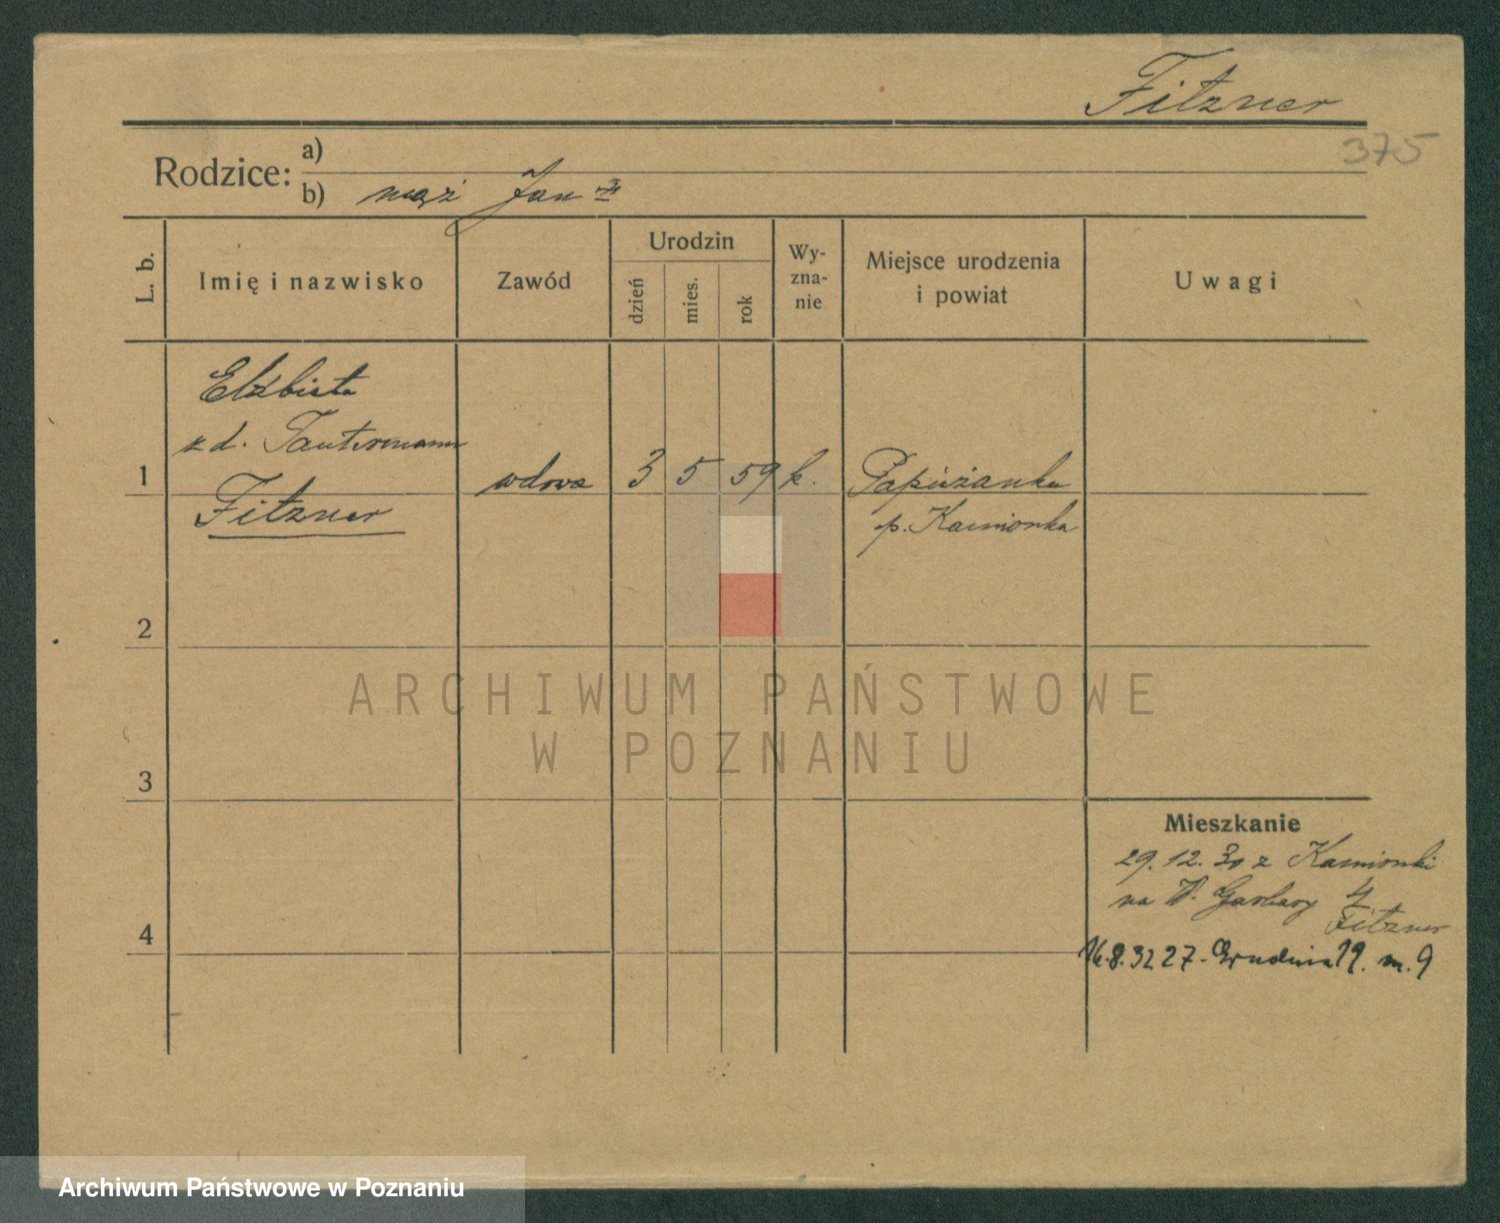 Fitzner
375
Rodzice: a)
b) mąż Jan
L. b.
Imię i nazwisko
Zawód
Urodzin
dzień
mies.
rok
Wy-
zna-
nie
Miejsce urodzenia
i powiat
Uwagi
Elżbieta
z d. Tautermann
1 Fitzner wdowa 3 5 59 k. Papiérzanka
p. Kamionka
2
3
4
Mieszkanie
29.12.30 z Kamionki
na W. Garbary 4
Fitzner
16.8.32 27. Grudnia 19. m. 9
ARCHIWUM PAŃSTWOWE
W POZNANIU
Archiwum Państwowe w Poznaniu